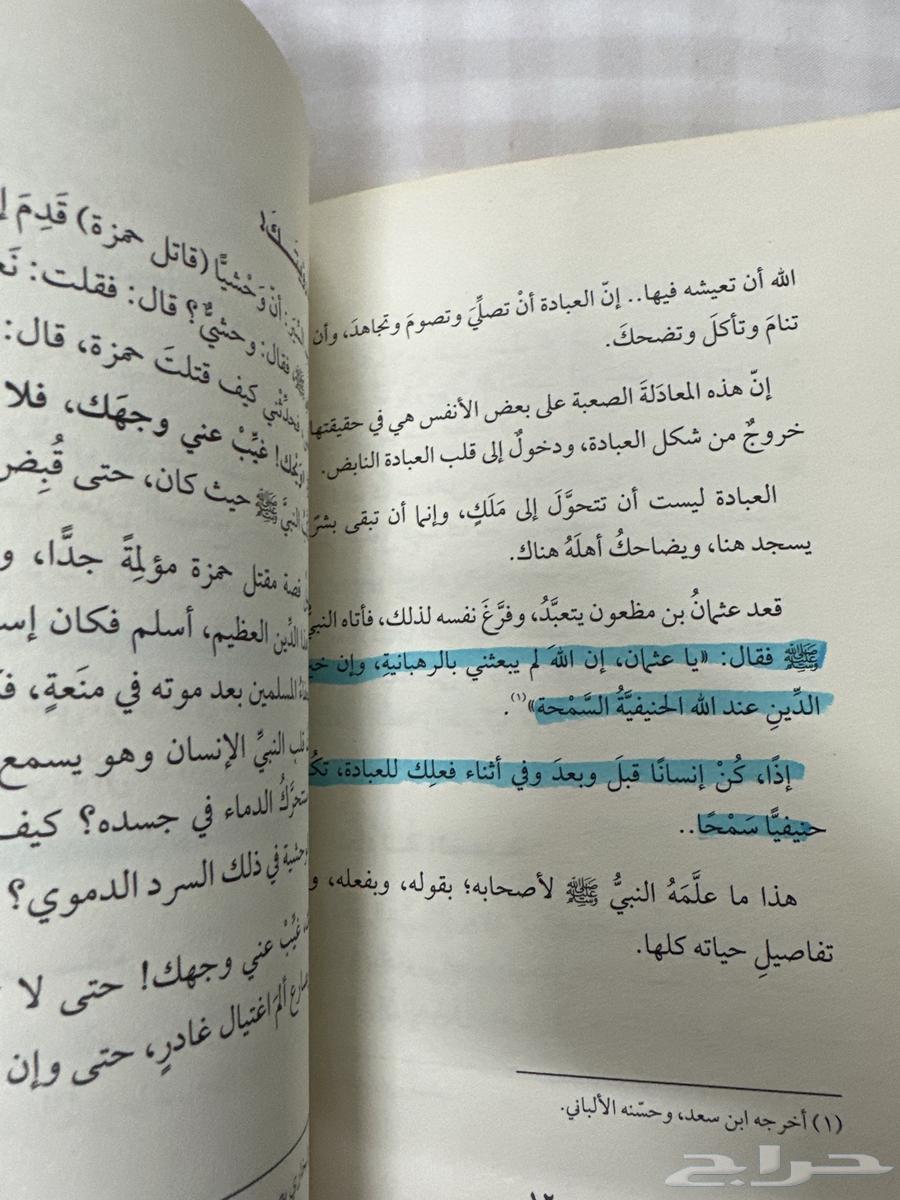 الله أن تعيشه فيها.. إنّ العبادة أنْ تصلِّيَ وتصومَ وتجاهدَ، وأن
تنامَ وتأكلَ وتضحكَ.
إنّ هذه المعادَلةَ الصعبة على بعض الأنفس هي في حقيقتها
خروجٌ من شكل العبادة، ودخولٌ إلى قلب العبادة النابض.
العبادة ليست أن تتحوَّلَ إلى مَلَكٍ، وإنما أن تبقى
يسجد هنا، ويضاحكُ أهلَهُ هناك.
قعد عثمانُ بن مظعون يتعبَّدُ، وفرَّغَ نفسه لذلك، فأتاه النبيُّ
ﷺ فقال: «يا عثمان، إن اللهَ لم يبعثني بالرهبانيةِ، وإن
الدِّينِ عند الله الحنيفيَّةُ السَّمْحة»(١).
إذًا، كُنْ إنسانًا قبلَ وبعدَ وفي أثناء فعلِك للعبادة،
حنيفيًّا سَمْحًا..
هذا ما علَّمَهُ النبيُّ ﷺ لأصحابه؛ بقوله، وبفعله،
تفاصيلِ حياته كلها.
(١) أخرجه ابن سعد، وحسّنه الألباني.
١٢
أنّ وَحْشيًّا (قاتل حمزة) قَدِمَ
فقال: وحشيٌّ؟ قال: فقلت:
كيف قتلتَ حمزة، قال:
غيِّبْ عني وجهَك، فلا
النبيَّ ﷺ حيث كان، حتى قُبِض
قصة مقتل حمزة مؤلمةً جدًّا،
الدِّين العظيم، أسلم فكان
المسلمين بعد موته في منَعةٍ،
قلب النبيِّ الإنسان وهو يسمع
الدماء في جسده؟ كيف
في ذلك السرد الدموي؟
غيِّبْ عني وجهك! حتى لا
ألمَ اغتيال غادرٍ، حتى وإن
حراج